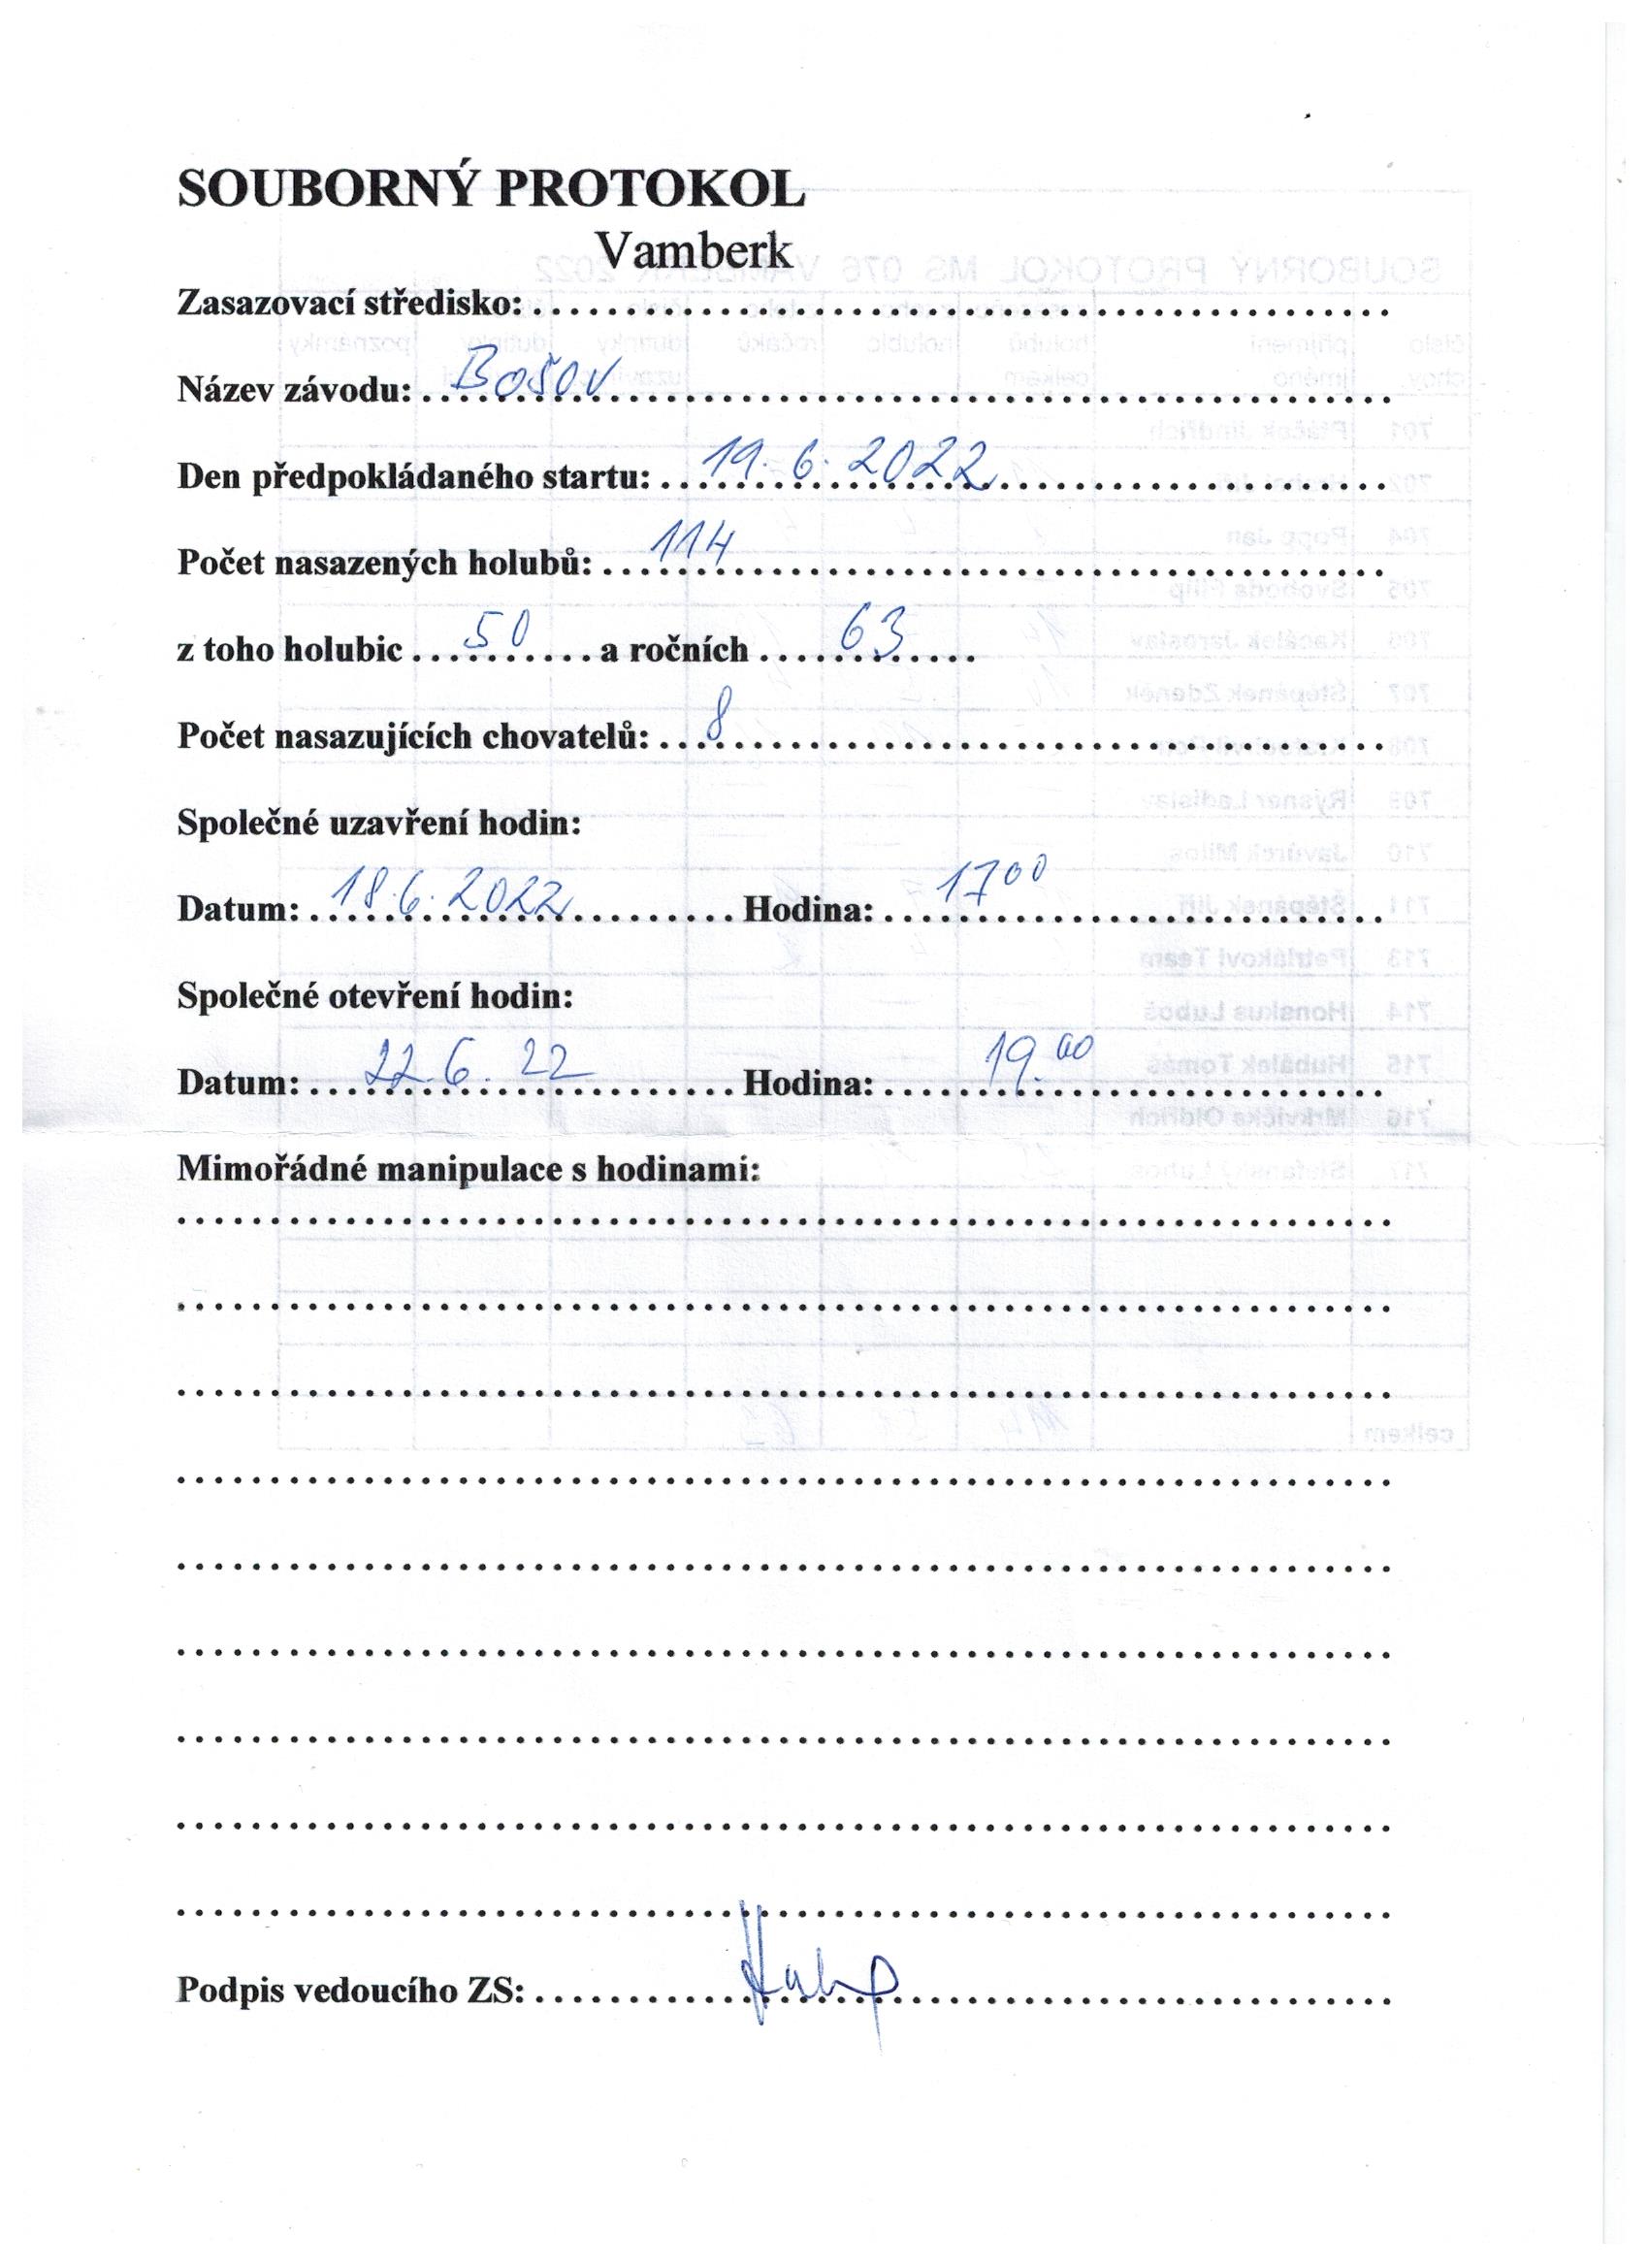 SOUBORNÝ PROTOKOL
Vamberk
Zasazovací středisko:
Název závodu: Bošov
Den předpokládaného startu: 19. 6. 2022
Počet nasazených holubů: 114
z toho holubic 50 a ročních 63
Počet nasazujících chovatelů: 8
Společné uzavření hodin:
Datum: 18.6.2022 Hodina: 17 00
Společné otevření hodin:
Datum: 22.6. 22 Hodina: 19.00
Mimořádné manipulace s hodinami:
Podpis vedoucího ZS: